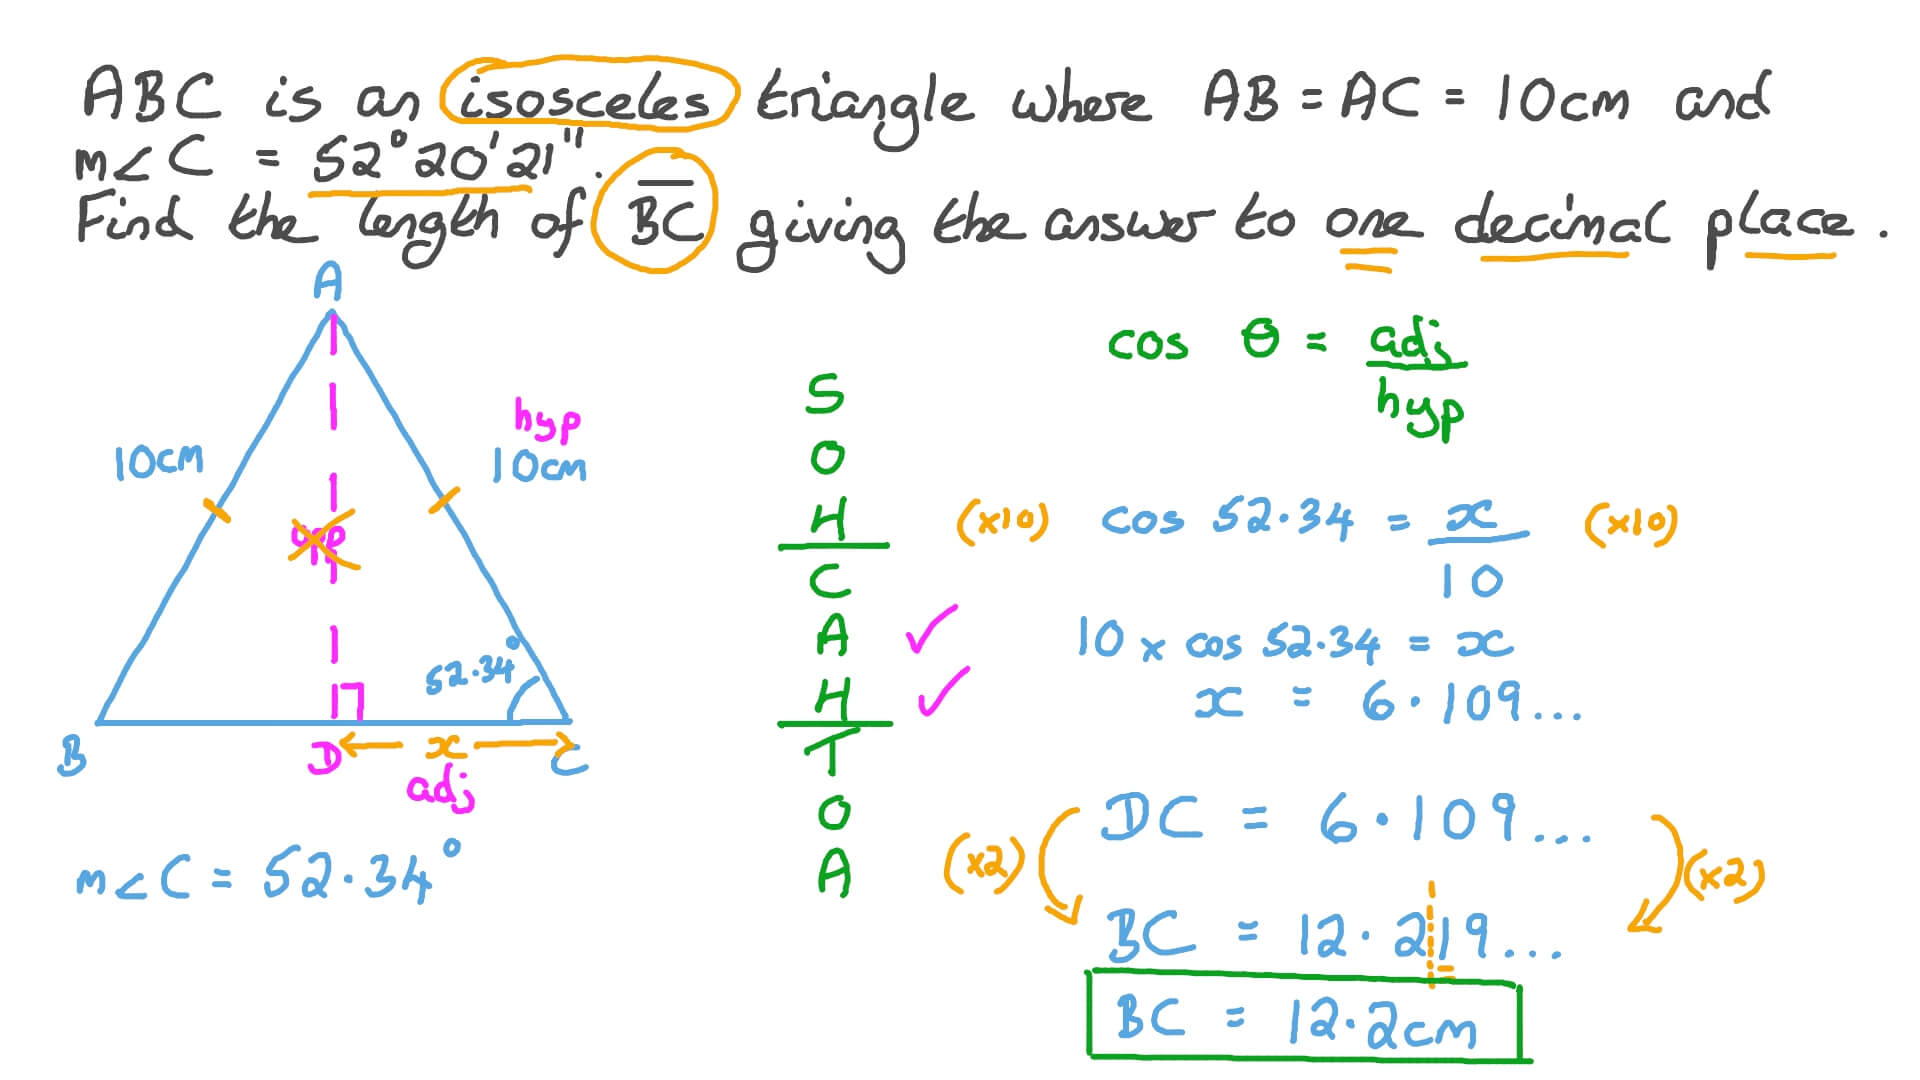 ABC is an isosceles triangle where AB = AC = 10cm and
m∠C = 52°20'21".
Find the length of B̅C̅ giving the answer to one decimal place.
A
hyp
10cm
10cm
opp
52.34°
B
D
x
C
adj
m∠C = 52.34°
S
O
H
C
A ✓
H ✓
T
O
A
cos θ = adj
hyp
(x10) cos 52.34 = x (x10)
10
10 x cos 52.34 = x
x = 6.109...
DC = 6.109...
(x2) (x2)
BC = 12.219...
BC = 12.2cm